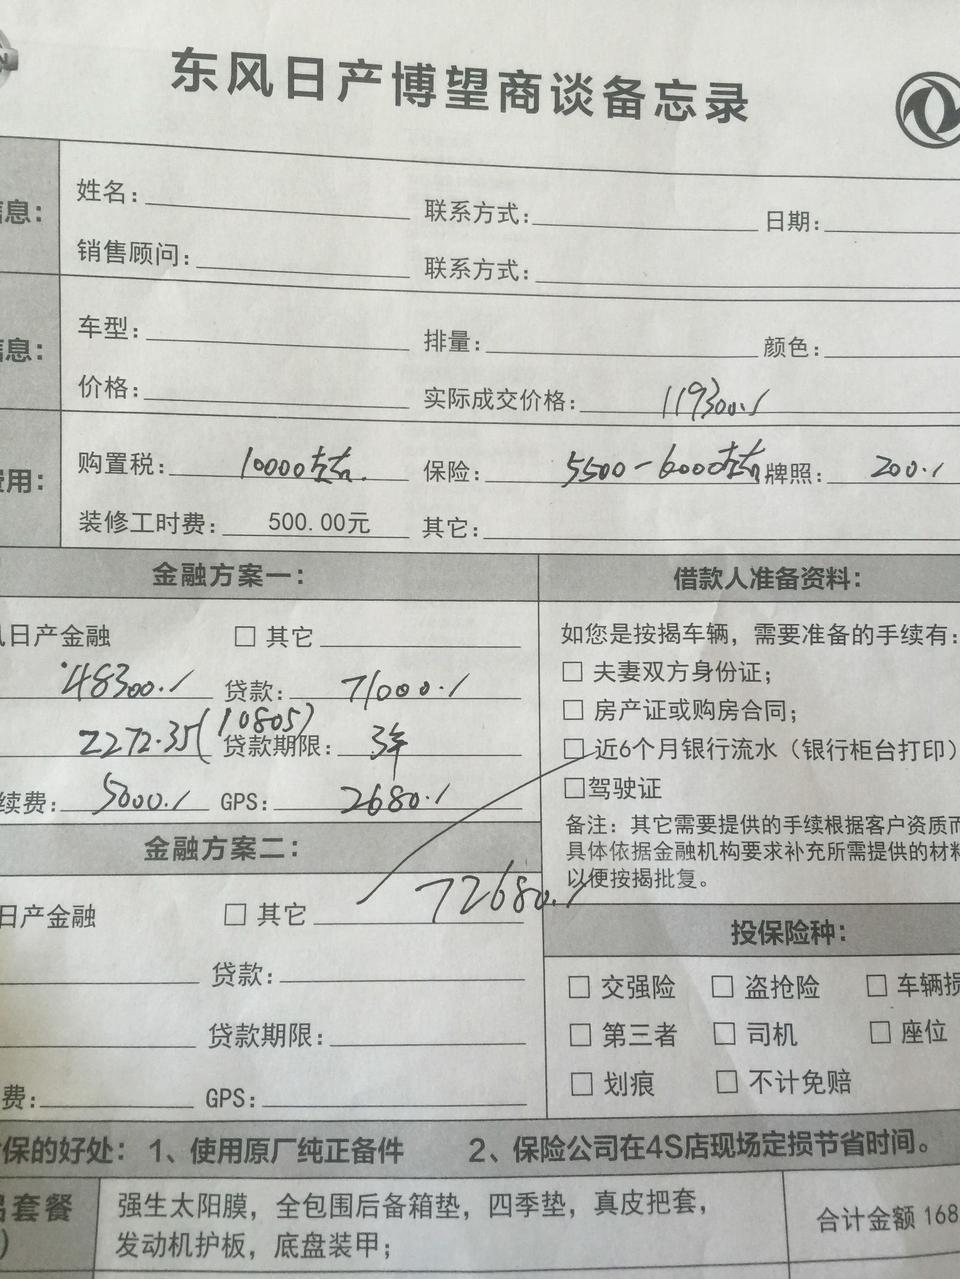 东风日产博望商谈备忘录
息： 姓名： 联系方式： 日期：
销售顾问： 联系方式：
息： 车型： 排量： 颜色：
价格： 实际成交价格： 119300.
费用： 购置税： 10000左右. 保险： 5500-6000左右 牌照： 200.
装修工时费： 500.00元 其它：
金融方案一： 借款人准备资料：
日产金融 □ 其它
48300. 贷款： 71000.
2272.35(10805) 贷款期限： 3年
续费： 5000. GPS： 2680.
如您是按揭车辆，需要准备的手续有：
□ 夫妻双方身份证；
□ 房产证或购房合同；
□ 近6个月银行流水（银行柜台打印）
□驾驶证
备注：其它需要提供的手续根据客户资质而
具体依据金融机构要求补充所需提供的材料
以便按揭批复。
金融方案二：
72680.
日产金融 □ 其它
贷款：
贷款期限：
费： GPS：
投保险种：
□ 交强险 □ 盗抢险 □ 车辆损
□ 第三者 □ 司机 □ 座位
□ 划痕 □ 不计免赔
保的好处：1、使用原厂纯正备件 2、保险公司在4S店现场定损节省时间。
套餐 强生太阳膜，全包围后备箱垫，四季垫，真皮把套，
发动机护板，底盘装甲；
合计金额 168